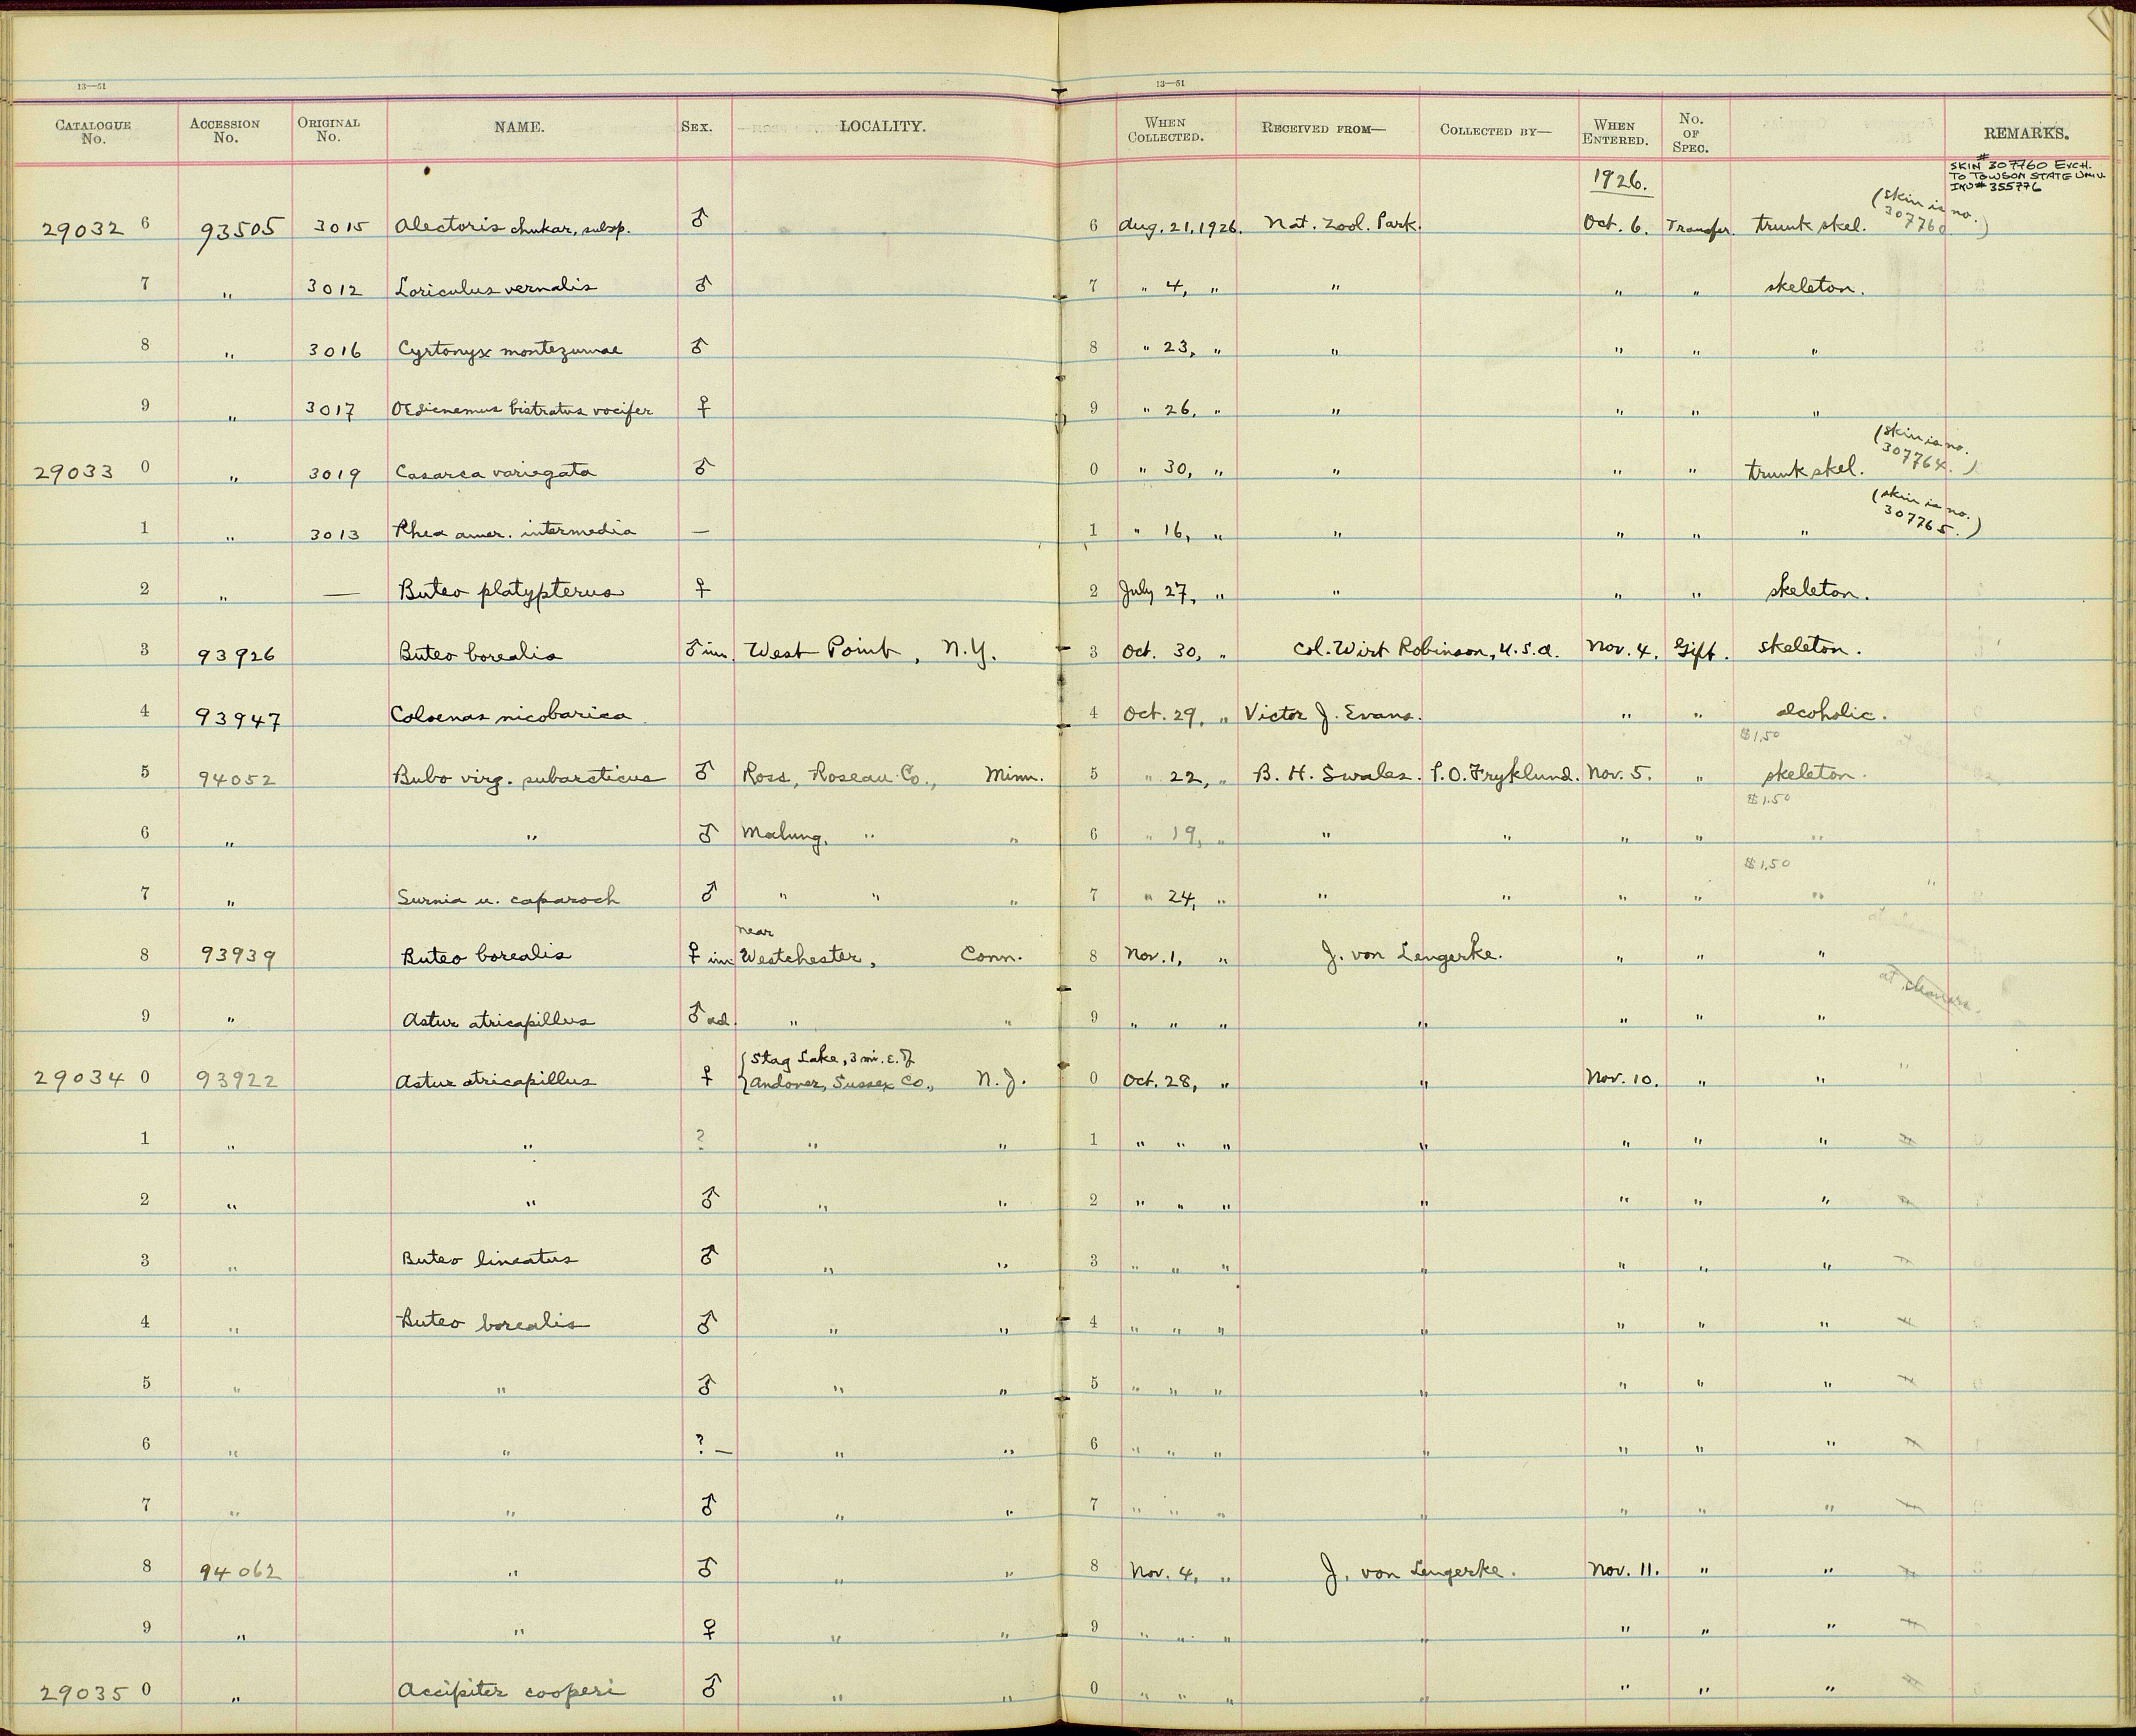 13—51 13—51
CATALOGUE No. ACCESSION No. ORIGINAL No. NAME. SEX. LOCALITY. WHEN COLLECTED. RECEIVED FROM— COLLECTED BY— WHEN ENTERED. No. OF SPEC. REMARKS.
SKIN # 307760 EXCH.
TO TOWSON STATE UNIV.
INV# 355776
1926.
29032 6 93505 3015 Alectoris chukar, subsp. ♂ 6 Aug. 21, 1926. Nat. Zool. Park. Oct. 6. Transfer. trunk skel. (skin is no. 307760)
7 " 3012 Loriculus vernalis ♂ 7 " 4, " " " " skeleton.
8 " 3016 Cyrtonyx montezumae ♂ 8 " 23, " " " " "
9 " 3017 Oedicnemus bistratus vocifer ♀ 9 " 26, " " " " "
29033 0 " 3019 Casarca variegata ♂ 0 " 30, " " " " trunk skel. (skin is no. 307764.)
1 " 3013 Rhea amer. intermedia — 1 " 16, " " " " " (skin is no. 307765.)
2 " — Buteo platypterus ♀ 2 July 27, " " " " skeleton.
3 93926 Buteo borealis ♂ im. West Point, N.Y. 3 Oct. 30, " Col. Wirt Robinson, U.S.A. Nov. 4. Gift. skeleton.
4 93947 Coloenas nicobarica 4 Oct. 29, " Victor J. Evans. " " alcoholic.
$1.50
5 94052 Bubo virg. subarcticus ♂ Ross, Roseau Co., Minn. 5 " 22, " B. H. Swales. P.O. Fryklund. Nov. 5. " skeleton.
$1.50
6 " " ♂ Malung, " " 6 " 19, " " " " " "
$1.50
7 " Surnia u. caparoch ♂ " " " 7 " 24, " " " " " " "
near
8 93939 Buteo borealis ♀ im. Westchester, Conn. 8 Nov. 1, " J. von Lengerke. " " "
at cleaners.
9 " Astur atricapillus ♂ ad. " " 9 " " " " " " "
{Stag Lake, 3 mi. E. of
29034 0 93922 Astur atricapillus ♀ {Andover, Sussex Co., N.J. 0 Oct. 28, " " Nov. 10. " " "
1 " " ? " " 1 " " " " " " "
2 " " ♂ " " 2 " " " " " " "
3 " Buteo lineatus ♂ " " 3 " " " " " " "
4 " Buteo borealis ♂ " " 4 " " " " " " "
5 " " ♂ " " 5 " " " " " " "
6 " " ? — " " 6 " " " " " " "
7 " " ♂ " " 7 " " " " " " "
8 94062 " ♂ " " 8 Nov. 4, " J. von Lengerke. Nov. 11. " "
9 " " ♀ " " 9 " " " " " " "
29035 0 " Accipiter cooperi ♂ " " 0 " " " " " " "